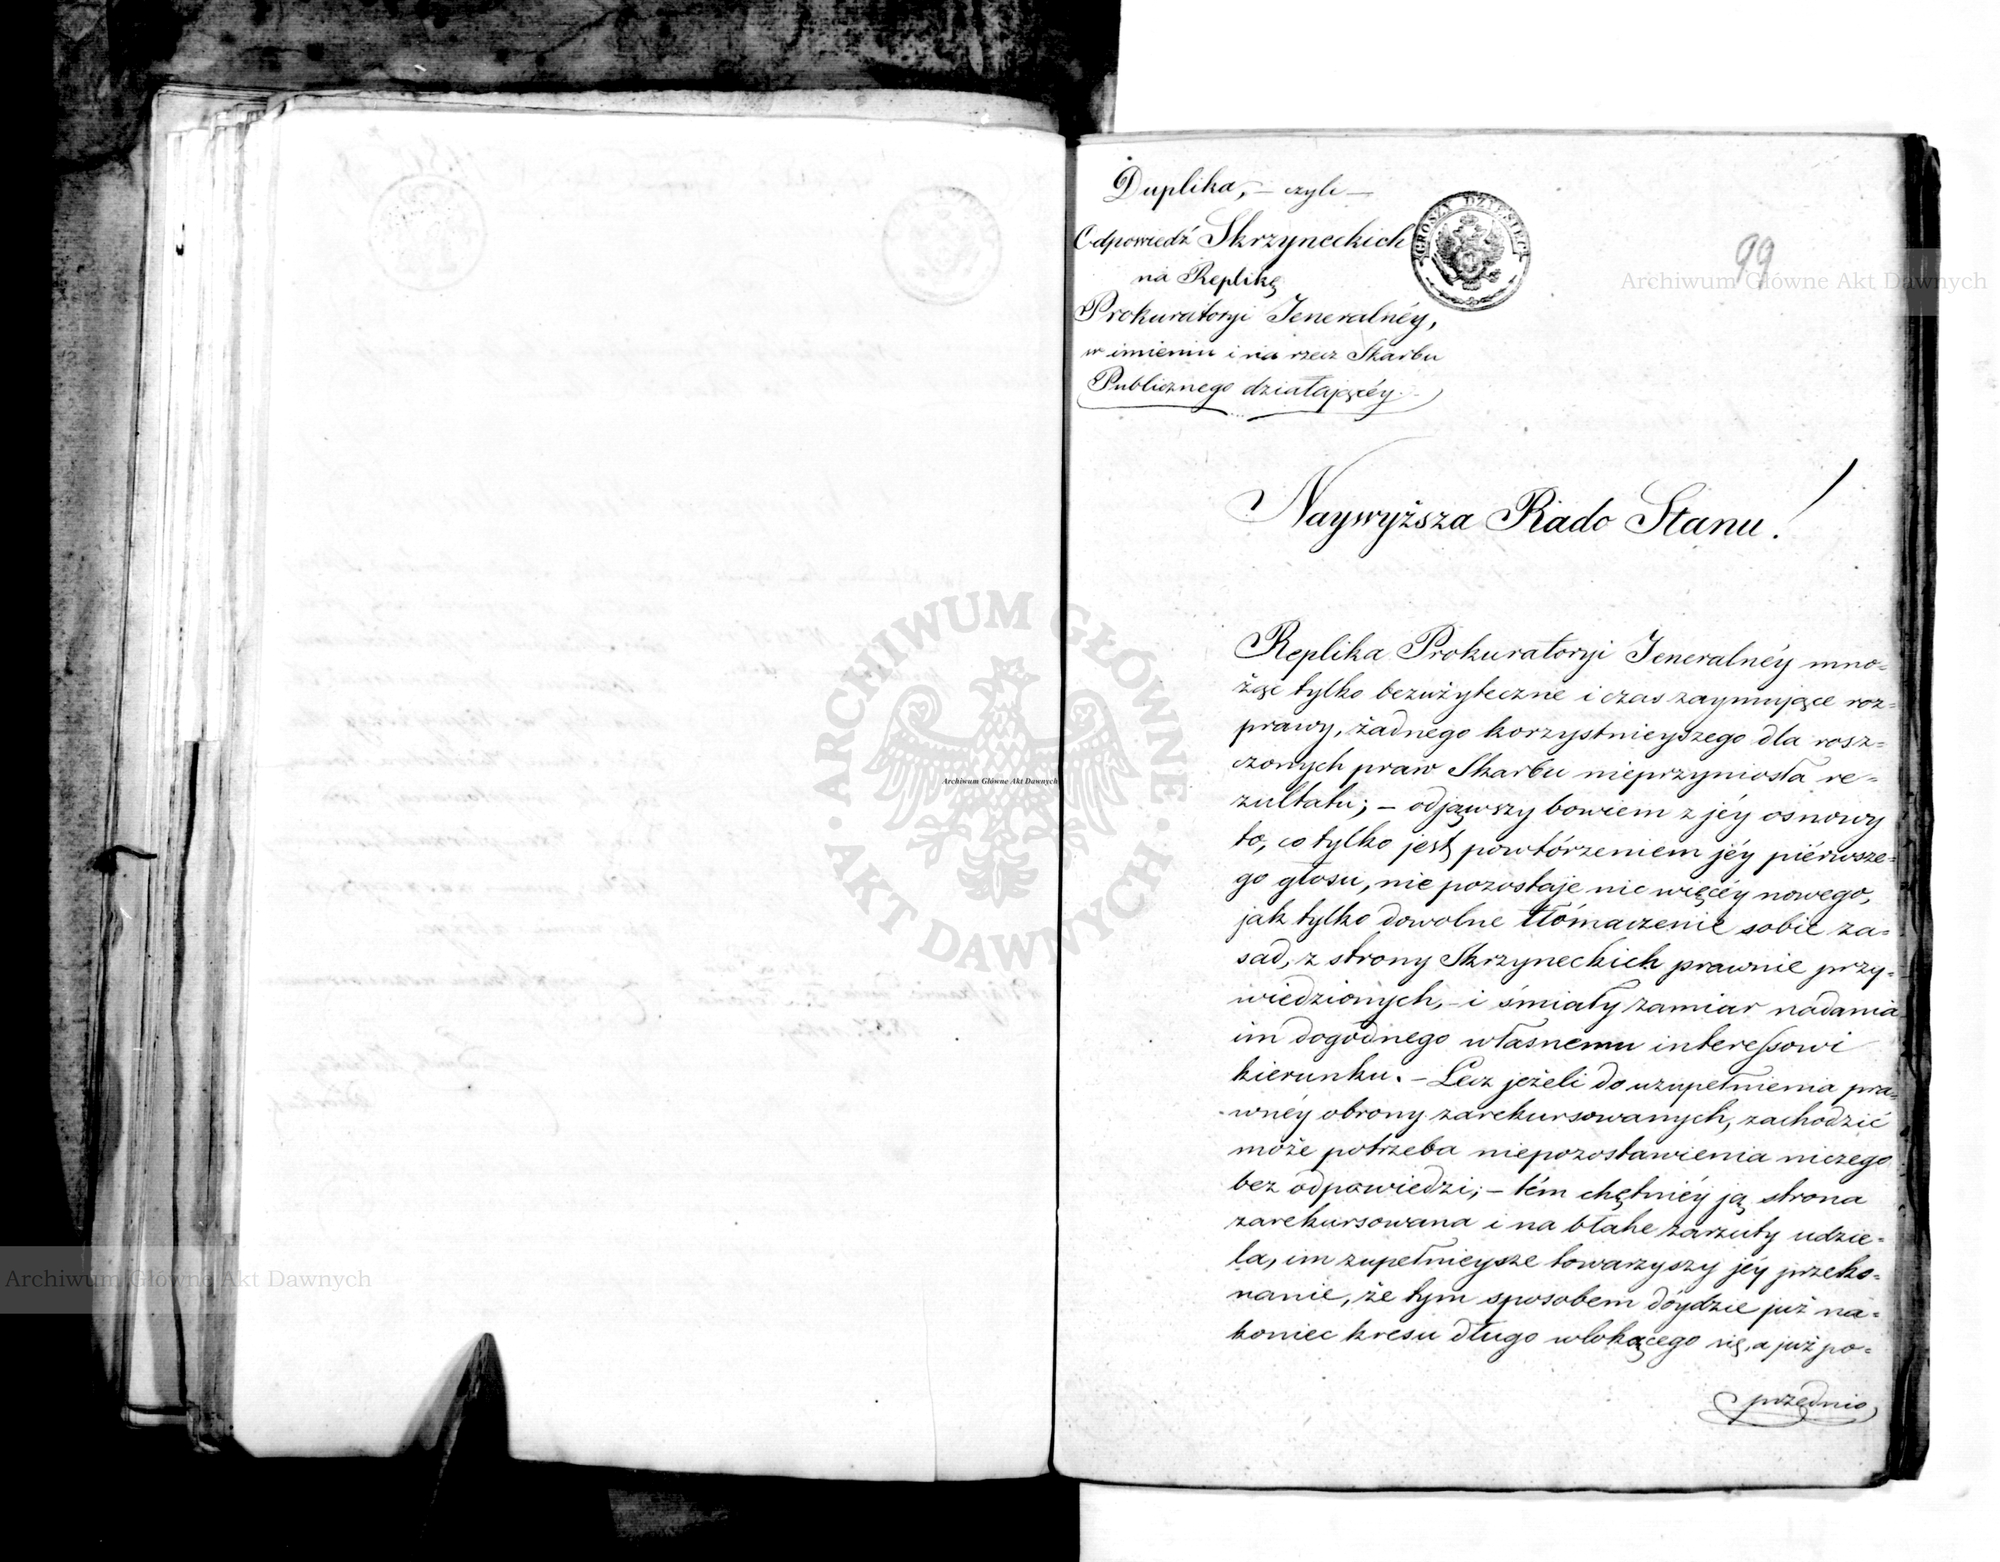 Duplika, – czyli –
Odpowiedź Skrzyneckich
na Replikę
Prokuratoryi Jeneralnéy,
w imieniu i na rzecz Skarbu
Publicznego działającéy.
GROSZY DZIESIĘĆ
99
Naywyższa Rado Stanu!
Replika Prokuratoryi Jeneralnéy mno-
żąc tylko bezużyteczne i czas zaymujące roz-
prawy, żadnego korzystnieyszego dla rosz-
czonych praw Skarbu nieprzyniosła re-
zultatu; – odjąwszy bowiem z jéy osnowy
to, co tylko jest powtórzeniem jéy piérwsze-
go głosu, nie pozostaje nic więcéy nowego,
jak tylko dowolne tłómaczenie sobie za-
sad, z strony Skrzyneckich prawnie przy-
wiedzionych, – i śmiały zamiar nadania
im dogodnego własnemu interessowi
kierunku. – Lecz jeżeli do uzupełnienia pra-
wnéy obrony zarekursowanych, zachodzić
może potrzeba niepozostawienia niczego
bez odpowiedzi; – tém chętniéy ją strona
zarekursowana i na błahe zarzuty udzie-
la, im zupełnieysze towarzyszy jéy przeko-
nanie, że tym sposobem dóydzie już na-
koniec kresu długo wlokącego się, a już po-
przednio
Archiwum Główne Akt Dawnych
Archiwum Główne Akt Dawnych
Archiwum Główne Akt Dawnych
ARCHIWUM GŁÓWNE · AKT DAWNYCH ·